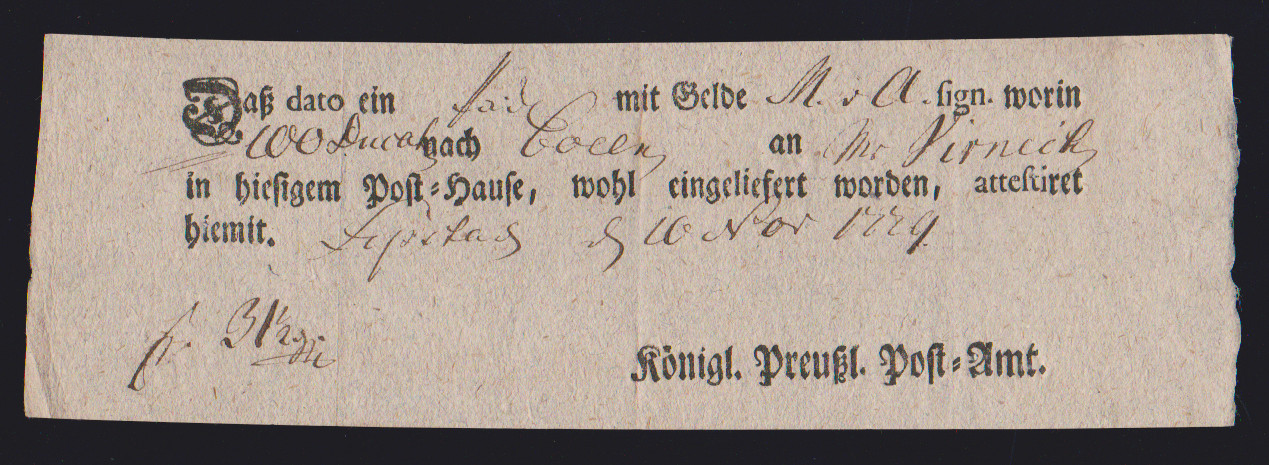 Daß dato ein mit Gelde M. v A. sign. worin
100 Ducat nach Cöeln an Mr Virnich
in hiesigem Post-Hause, wohl eingeliefert worden, attestiret
hiemit. Lipstad d 16 Nov 1779.
fr. 31½
Königl. Preußl. Post-Amt.